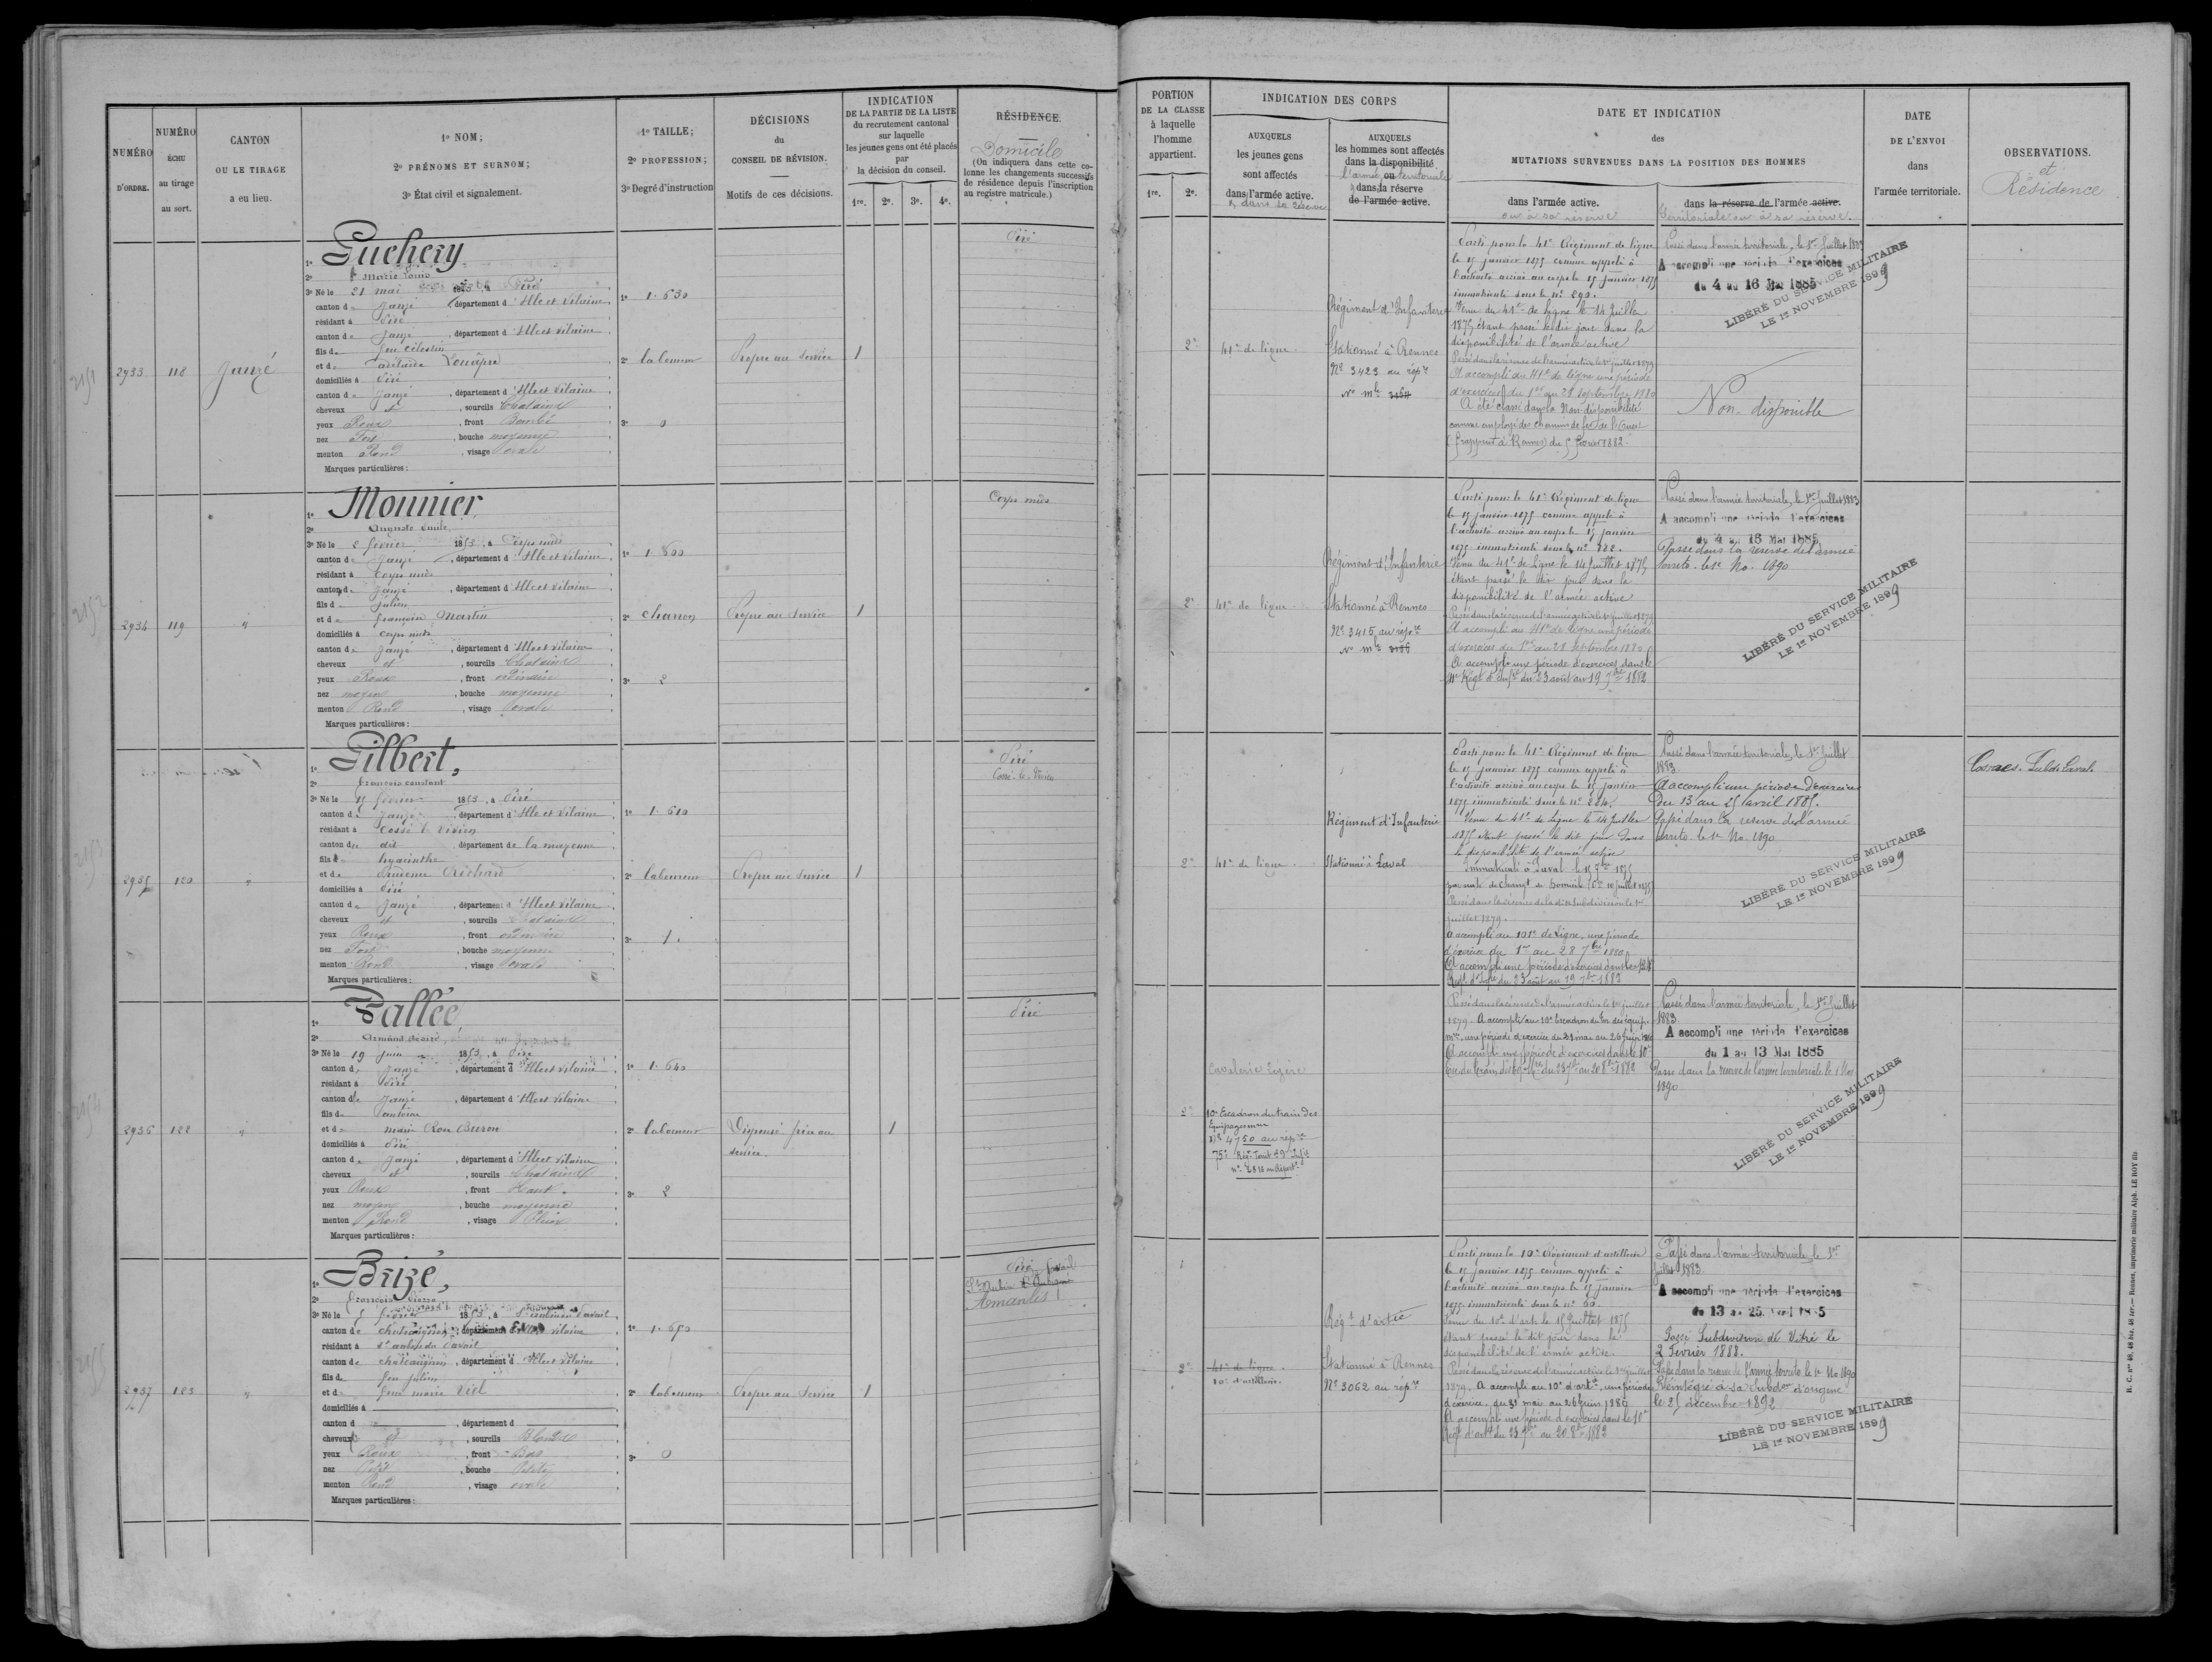 NUMÉRO
D'ORDRE.
NUMÉRO
ÉCHU
au tirage
au sort.
CANTON
OU LE TIRAGE
a eu lieu.
1º NOM;
2º PRÉNOMS ET SURNOM;
3º État civil et signalement.
1º TAILLE;
2º PROFESSION;
3º Degré d'instruction
DÉCISIONS
du
CONSEIL DE RÉVISION.
Motifs de ces décisions.
INDICATION
DE LA PARTIE DE LA LISTE
du recrutement cantonal
sur laquelle
les jeunes gens ont été placés
par
la décision du conseil.
1re. 2e. 3e. 4e.
RÉSIDENCE.
Domicile
(On indiquera dans cette co-
lonne les changements successifs
de résidence depuis l'inscription
au registre matricule.)
PORTION
DE LA CLASSE
à laquelle
l'homme
appartient.
1re. 2e.
INDICATION DES CORPS
AUXQUELS
les jeunes gens
sont affectés
dans l'armée active.
& dans sa réserve
AUXQUELS
les hommes sont affectés
dans la disponibilité
l'armée ou territoriale
& dans la réserve
de l'armée active.
DATE ET INDICATION
des
MUTATIONS SURVENUES DANS LA POSITION DES HOMMES
dans l'armée active.
ou à sa réserve
dans la réserve de l'armée active.
territoriale ou à sa réserve.
DATE
DE L'ENVOI
dans
l'armée territoriale.
OBSERVATIONS.
et
Résidence
2933
118
Janzé
1º Guehery
2º Marie Louis
3º Né le 21 mai 1853, à Piré
canton de Janzé, département d'Ille et Vilaine
résidant à Piré
canton de Janzé, département d'Ille et Vilaine
fils de feu Célestin
et de
domiciliés à Piré
canton de Janzé, département d'Ille et Vilaine
cheveux et, sourcils Chatains
yeux Roux, front Bombé
nez Fort, bouche moyenne
menton Rond, visage ovale
Marques particulières :
1º 1.630
2º laboureur
3º 0
Propre au service
1
Piré
2e
41e de ligne.
Régiment d'Infanterie
Stationné à Rennes
Nº 3423 au rép.re
Nº mle
Parti pour le 41e Régiment de ligne
le 15 janvier 1875 comme appelé à
l'activité arrivé au corps le 15 janvier 1875
immatriculé sous le nº 290.
Venu du 41e de ligne le 14 Juillet
1875 étant passé le dit jour dans la
disponibilité de l'armée active
Passé dans la réserve de l'armée active le 1er juillet 1879
A accompli au 41e de ligne une période
d'exercices du 1er au 28 septembre 1880
A été classé dans la Non disponibilité
comme employé des chemins de fer de l'Ouest
Passé dans l'armée territoriale, le 1er Juillet 1883
A accompli une période d'exercices
du 4 au 16 Mai 1885
LIBÉRÉ DU SERVICE MILITAIRE
LE 1er NOVEMBRE 1899
Non disponible
2934
119
"
1º Monnier,
2º Auguste Emile
3º Né le 2 février 1853, à Corps nuds
canton de Janzé, département d'Ille et Vilaine
résidant à Corps nuds
canton de Janzé, département d'Ille et Vilaine
fils de Julien
et de françoise Martin
domiciliés à corps nuds
canton de Janzé, département d'Ille et Vilaine
cheveux et, sourcils Chatains
yeux Roux, front ordinaire
nez moyen, bouche moyenne
menton Rond, visage ovale
Marques particulières :
1º 1.600
2º charron
3º 2
Propre au service
1
Corps nuds
2e
41e de ligne.
Régiment d'Infanterie
Stationné à Rennes
Nº 3415 au rép.re
Nº mle
Parti pour le 41e Régiment de ligne
le 15 janvier 1875 comme appelé à
l'activité arrivé au corps le 15 janvier
1875 immatriculé sous le nº 282.
Venu du 41e de Ligne le 14 Juillet 1875
étant passé le dit jour dans la
disponibilité de l'armée active
Passé dans la réserve de l'armée active le 1er juillet 1879
A accompli au 41e de ligne une période
d'exercices du 1er au 28 septembre 1880
A accompli une période d'exercices dans le
41e Régt d'Infie du 23 août au 19 7bre 1882
Passé dans l'armée territoriale, le 1er Juillet 1883
A accompli une période d'exercices
du 4 au 16 Mai 1885
Passé dans la réserve de l'armée
territo. le 1er No. 1890
LIBÉRÉ DU SERVICE MILITAIRE
LE 1er NOVEMBRE 1899
2935
120
"
1º Gilbert,
2º françois constant
3º Né le 15 février 1853, à Piré
canton de Janzé, département d'Ille et Vilaine
résidant à Cossé le Vivien
canton du dit, département de la mayenne
fils de hyacinthe
et de Prudence Richard
domiciliés à Piré
canton de Janzé, département d'Ille et Vilaine
cheveux et, sourcils Chatains
yeux Roux, front ordinaire
nez Fort, bouche moyenne
menton Rond, visage ovale
Marques particulières :
1º 1.610
2º laboureur
3º 1.
Propre au service
1
Piré
Cossé-le-Vivien
2e
41e de ligne.
Régiment d'Infanterie
Stationné à Laval
Parti pour le 41e Régiment de ligne
le 15 janvier 1875 comme appelé à
l'activité arrivé au corps le 15 janvier
1875 immatriculé sous le nº 284.
Venu du 41e de Ligne le 14 Juillet
1875 étant passé le dit jour dans
la disponibilité de l'armée active
Immatriculé à Laval le 15 7bre 1875
par suite de changt de domicile
Passé dans la réserve de la dite subdivision le 1er
juillet 1879.
A accompli au 101e de Ligne, une période
d'exercice du 1er au 28 7bre 1880
A accompli une période d'exercices dans le 124e
Régt d'Infie du 23 août au 19 7bre 1882
Passé dans l'armée territoriale, le 1er Juillet
1883
A accompli une période d'exercices
du 13 au 25 avril 1885.
Passé dans la réserve de l'armée
territo. le 1er No. 1890
LIBÉRÉ DU SERVICE MILITAIRE
LE 1er NOVEMBRE 1899
Subd. Laval
2936
122
"
1º Vallée,
2º Armand désiré
3º Né le 19 Juin 1853, à Piré
canton de Janzé, département d'Ille et Vilaine
résidant à Piré
canton de Janzé, département d'Ille et Vilaine
fils de antoine
et de marie Rose Buron
domiciliés à Piré
canton de Janzé, département d'Ille et Vilaine
cheveux et, sourcils Chatains
yeux Roux, front Haut.
nez moyen, bouche moyenne
menton Rond, visage Plein
Marques particulières :
1º 1.640
2º laboureur
3º 2
Dispensé frère au
service.
1
Piré
2e
Cavalerie Légère
10e Escadron du train des
Equipages
Nº 4750 au rép.re
Passé dans la réserve de l'armée active le 1er juillet
1879. A accompli au 10e Escadron du Tn des équip.
mres, une période d'exercice du 31 mai au 26 Juin 1880
A accompli une période d'exercices dans le 10e
Esc. du train des Eq. mres du 23 7bre au 20 8bre 1882
Passé dans l'armée territoriale, le 1er Juillet
1883
A accompli une période d'exercices
du 1 au 13 Mai 1885
Passé dans la réserve de l'armée territoriale le 1 Nov
1890
LIBÉRÉ DU SERVICE MILITAIRE
LE 1er NOVEMBRE 1899
2937
123
"
1º Brizé,
2º françois Pierre
3º Né le 5 février 1853, à St aubin du Pavail
canton de chateaugiron, département d'Ille et Vilaine
résidant à St aubin du Pavail
canton de chateaugiron, département d'Ille et Vilaine
fils de feu Julien
et de feue marie Viel
domiciliés à
canton d, département d
cheveux et, sourcils Blonds
yeux Roux, front Bas
nez Petit, bouche Petite
menton Rond, visage ovale
Marques particulières :
1º 1.650
2º laboureur
3º 0
Propre au Service
1
Amanlis
2e
41e de ligne.
10e d'artillerie.
Régt d'artie
Stationné à Rennes
Nº 3062 au rép.re
Parti pour le 10e Régiment d'artillerie
le 15 janvier 1875 comme appelé à
l'activité arrivé au corps le 15 janvier
1875 immatriculé sous le nº 60.
Venu du 10e d'art. le 15 Juillet 1875
étant passé le dit jour dans la
disponibilité de l'armée active.
Passé dans la réserve de l'armée active le 1er juillet
1879. A accompli au 10e d'artie, une période
d'exercice du 31 mai au 26 Juin 1880
A accompli une période d'exercices dans le 10e
Régt d'artie du 23 7bre au 20 8bre 1882
Passé dans l'armée territoriale le 1er
Juillet 1883
A accompli une période d'exercices
du 13 au 25 avril 1885
Passé Subdivision de Vitré le
2 Février 1888.
Passé dans la réserve de l'armée territo. le 1er No 1890
Réintégré à sa Subdon d'origine
le 25 décembre 1892
LIBÉRÉ DU SERVICE MILITAIRE
LE 1er NOVEMBRE 1899
R. C. nº 48, 48 bis, 48 ter. — Rennes, imprimerie militaire Alph. LE ROY fils
2151
2152
2153
2154
2155